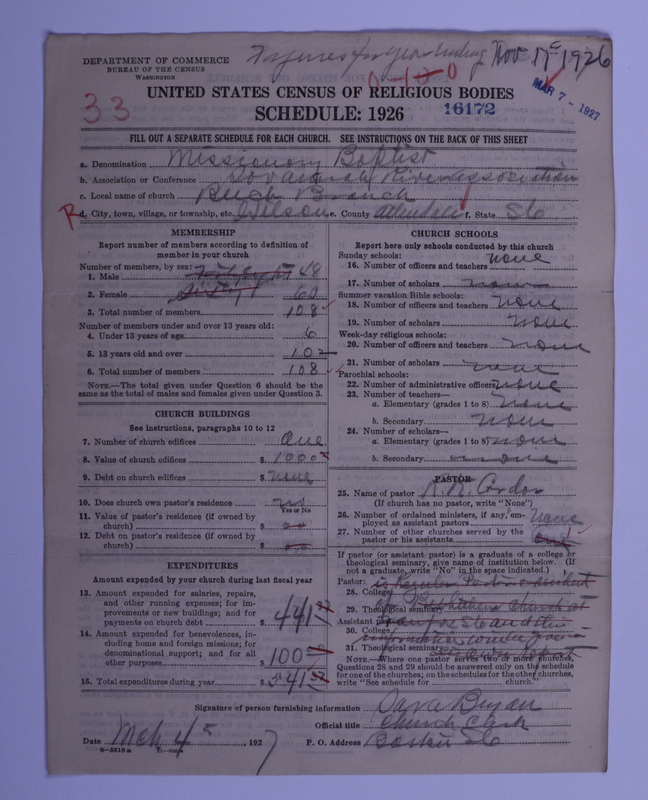 DEPARTMENT OF COMMERCE
BUREAU OF THE CENSUS
WASHINGTON
Figures for year ending Nov 17 1926
33
UNITED STATES CENSUS OF RELIGIOUS BODIES
SCHEDULE: 1926
16172
MAR 7 - 1927
FILL OUT A SEPARATE SCHEDULE FOR EACH CHURCH. SEE INSTRUCTIONS ON THE BACK OF THIS SHEET
a. Denomination Missionary Baptist
b. Association or Conference Savannah River Association
c. Local name of church Branch
R d. City, town, village, or township, etc. e. County Allendale f. State S C
MEMBERSHIP
Report number of members according to definition of
member in your church
Number of members, by sex:
1. Male 48
2. Female 60
3. Total number of members 108
Number of members under and over 13 years old:
4. Under 13 years of age 6
5. 13 years old and over 102
6. Total number of members 108
NOTE.—The total given under Question 6 should be the
same as the total of males and females given under Question 3.
CHURCH BUILDINGS
See instructions, paragraphs 10 to 12
7. Number of church edifices One
8. Value of church edifices $ 1000
9. Debt on church edifices $ none
10. Does church own pastor's residence no
Yes or No
11. Value of pastor's residence (if owned by
church) $
12. Debt on pastor's residence (if owned by
church) $
EXPENDITURES
Amount expended by your church during last fiscal year
13. Amount expended for salaries, repairs,
and other running expenses; for im-
provements or new buildings; and for
payments on church debt $ 441
14. Amount expended for benevolences, in-
cluding home and foreign missions; for
denominational support; and for all
other purposes $ 100
15. Total expenditures during year $ 541
CHURCH SCHOOLS
Report here only schools conducted by this church
Sunday schools:
16. Number of officers and teachers none
17. Number of scholars none
Summer vacation Bible schools:
18. Number of officers and teachers none
19. Number of scholars none
Week-day religious schools:
20. Number of officers and teachers none
21. Number of scholars none
Parochial schools:
22. Number of administrative officers none
23. Number of teachers—
a. Elementary (grades 1 to 8) none
b. Secondary none
24. Number of scholars—
a. Elementary (grades 1 to 8) none
b. Secondary none
PASTOR
25. Name of pastor
(If church has no pastor, write "None")
26. Number of ordained ministers, if any, em-
ployed as assistant pastors none
27. Number of other churches served by the
pastor or his assistants
If pastor (or assistant pastor) is a graduate of a college or
theological seminary, give name of institution below. (If
not a graduate, write "No" in the space indicated.)
Pastor:
28. College
29. Theological seminary
Assistant pastor:
30. College
31. Theological seminary
NOTE.—Where one pastor serves two or more churches,
Questions 28 and 29 should be answered only on the schedule
for one of the churches; on the schedules for the other churches,
write "See schedule for church."
Signature of person furnishing information Bryan
Official title Church Clerk
Date Mch 4, 1927 P. O. Address S C